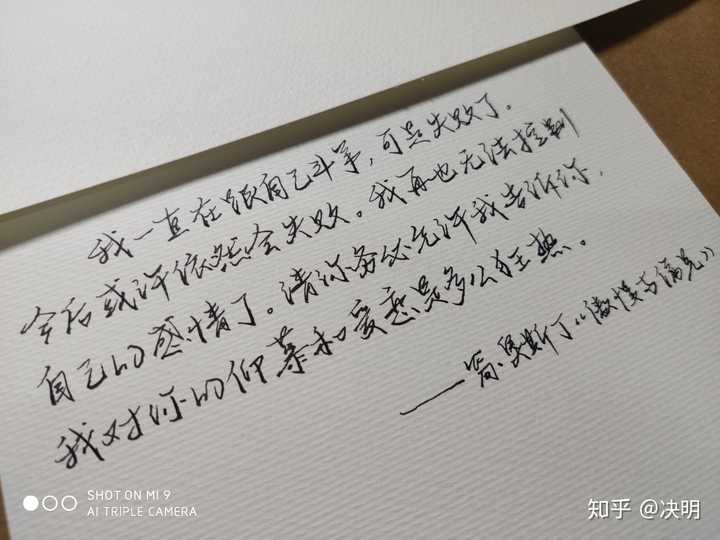 我一直在跟自己斗争，可是失败了。
今后或许依然会失败。我再也无法控制
自己的感情了。请你务必允许我告诉你，
我对你的仰慕和爱恋是多么狂热。
——简·奥斯丁《傲慢与偏见》
SHOT ON MI 9
AI TRIPLE CAMERA
知乎 @决明